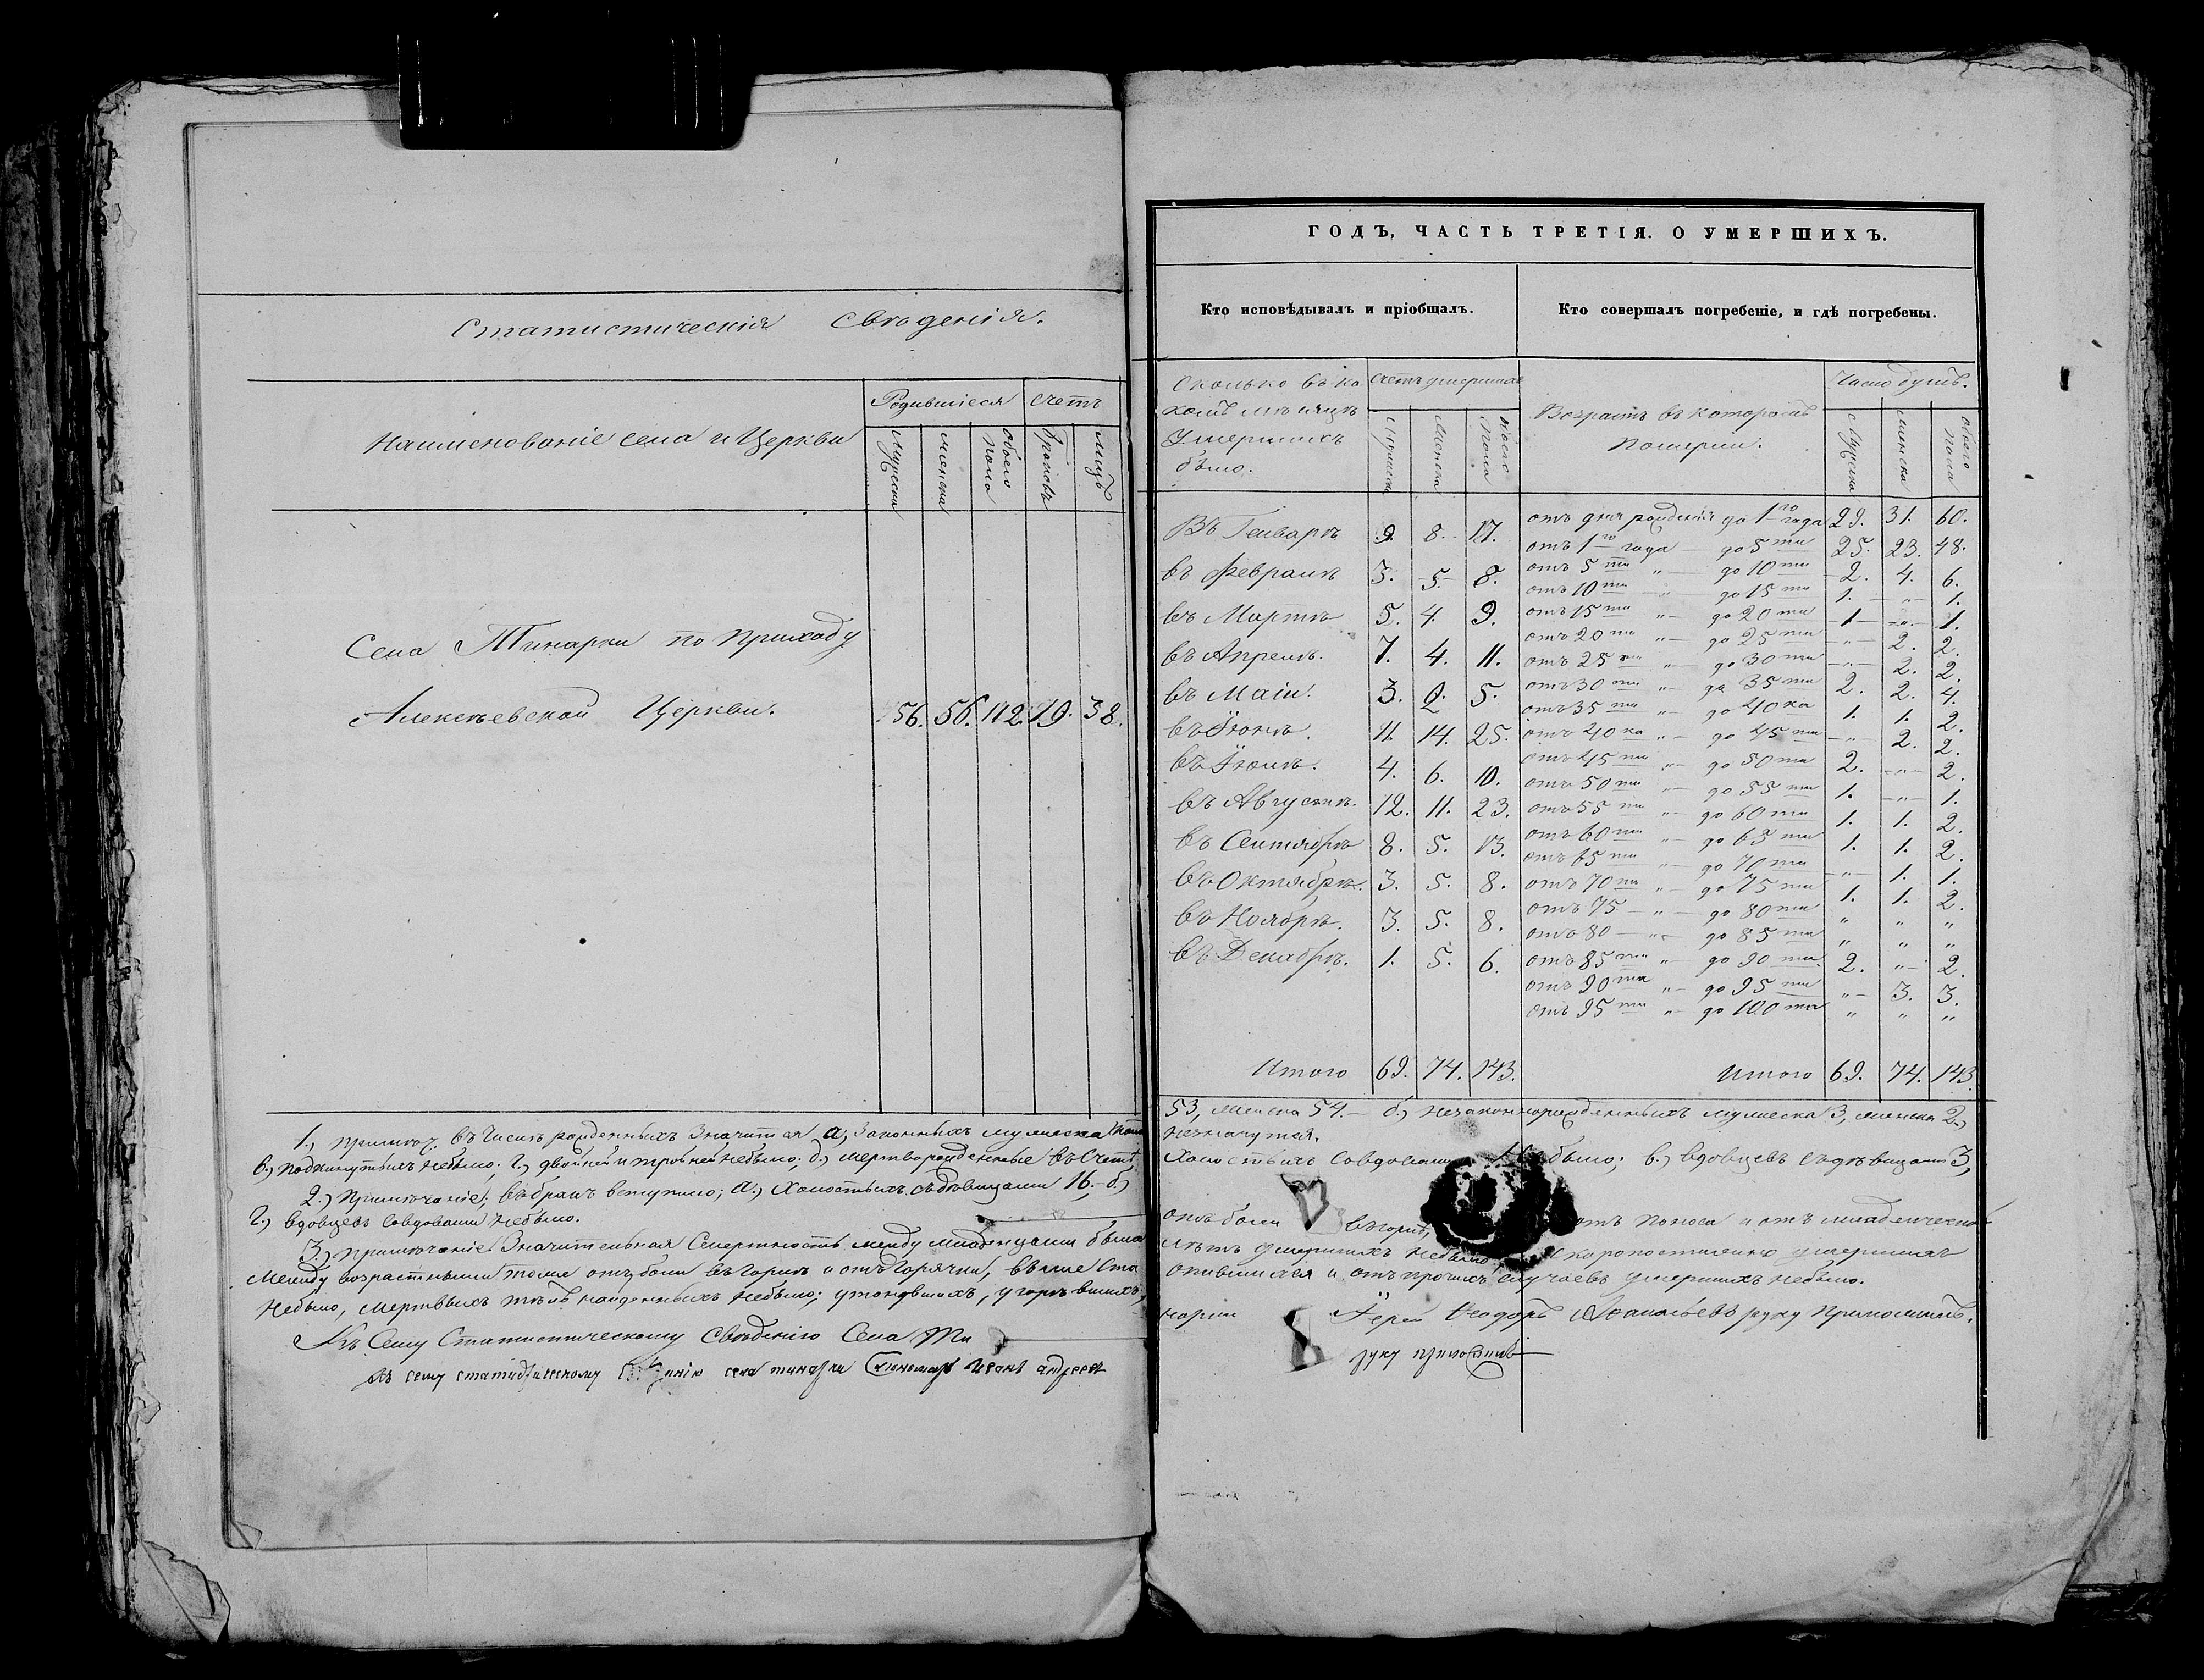 Статистическія Сведенія.
Наименованіе села и Церкви
Родившіеся
Счетъ
Мужеска
женска
обоего пола
браковъ
лицъ
Села Тинарки по приходу
Алексеевской Церкви. 56. 56. 112. 19. 38.
1., Примѣч. въ числѣ рожденныхъ значится а, законныхъ мужеска пола
в.) подкинутыхъ небыло; г.) двойней и тройней небыло; д.) мертворожденные въ счетъ
2.) Примѣчаніе; въ бракъ вступило; а.) холостыхъ съ дѣвицами 16.– б.)
г.) вдовцевъ совдовами небыло.
3.) Примѣчаніе. Значительная Смертность между младенцами была
Между возрастными тоже отъ боли въ горлѣ и отъ горячки, выше ста
небыло, мертвыхъ тѣлъ найденныхъ небыло; утонувшихъ, угорѣвшихъ,
Къ Сему Статистическому Сведѣнію Села Ти
Къ сему статистическому сведенію села тинарки Пономарь Иванъ андреевъ
ГОДЪ, ЧАСТЬ ТРЕТІЯ. О УМЕРШИХЪ.
Кто исповѣдывалъ и пріобщалъ.
Кто совершалъ погребеніе, и гдѣ погребены.
Сколько въ ка
комъ мѣсяцѣ
Умершихъ
было.
Счетъ умершихъ
Мужеска
Женска
обоего пола
Возрастъ въ которомъ
Померли.
Число душъ.
Мужеска
женска
обоего пола
Въ Генварѣ 9. 8. 17.
въ Февралѣ 3. 5. 8.
въ Мартѣ 5. 4. 9.
въ Апрелѣ. 7. 4. 11.
въ Маіи. 3. 2. 5.
въ Іюнѣ. 11. 14. 25.
въ Іюлѣ. 4. 6. 10.
въ Августѣ. 12. 11. 23.
въ Сентябрѣ 8. 5. 13.
въ Октябрѣ. 3. 5. 8.
въ Ноябрѣ. 3. 5. 8.
въ Декабрѣ. 1. 5. 6.
Итого 69. 74. 143.
отъ дня рожденія до 1го года 29. 31. 60.
отъ 1го года — до 5ти 25. 23. 48.
отъ 5ти „ — до 10ти 2. 4. 6.
отъ 10ти — „ — до 15ти 1. — „ — 1.
отъ 15ти „ — до 20ти 1 — „ — 1.
отъ 20ти „ — до 25ти — „ — 2. 2.
отъ 25ти „ — до 30ти — „ — 2. 2.
отъ 30ти „ — до 35ти 2. 2. 4.
отъ 35ти „ — до 40ка 1. 1. 2.
отъ 40ка „ — до 45ти — „ — 2. 2.
отъ 45ти „ — до 50ти 2. — „ — 2.
отъ 50ти „ — до 55ти 1. — „ — 1.
отъ 55ти „ — до 60ти 1. 1. 2.
отъ 60ти „ — до 65ти 1. 1. 2.
отъ 65ти „ — до 70ти — „ — 1. 1.
отъ 70ти „ — до 75ти 1. 1. 2.
отъ 75 — „ — до 80ти „ „ „
отъ 80 — „ — до 85ти „ „ „
отъ 85ти „ — до 90та 2. „ — 2.
отъ 90та „ — до 95ти „ — 3. 3.
отъ 95ти „ — до 100та „ „ „
Итого 69. 74. 143.
53, женска 54.— б.) незаконнорожденныхъ мужеска 3, женска 2.)
незначутся.
Холостыхъ совдовами небыло; в.) вдовцевъ съ дѣвицами 3,
отъ боли въ горлѣ, отъ поноса и отъ младенческой
лѣтъ умершихъ небыло, Скоропостижно умершихъ
опившихся и отъ прочихъ случаевъ умершихъ небыло.
нарки Іерей Феодоръ Афанасьевъ руку приложилъ.
руку приложилъ